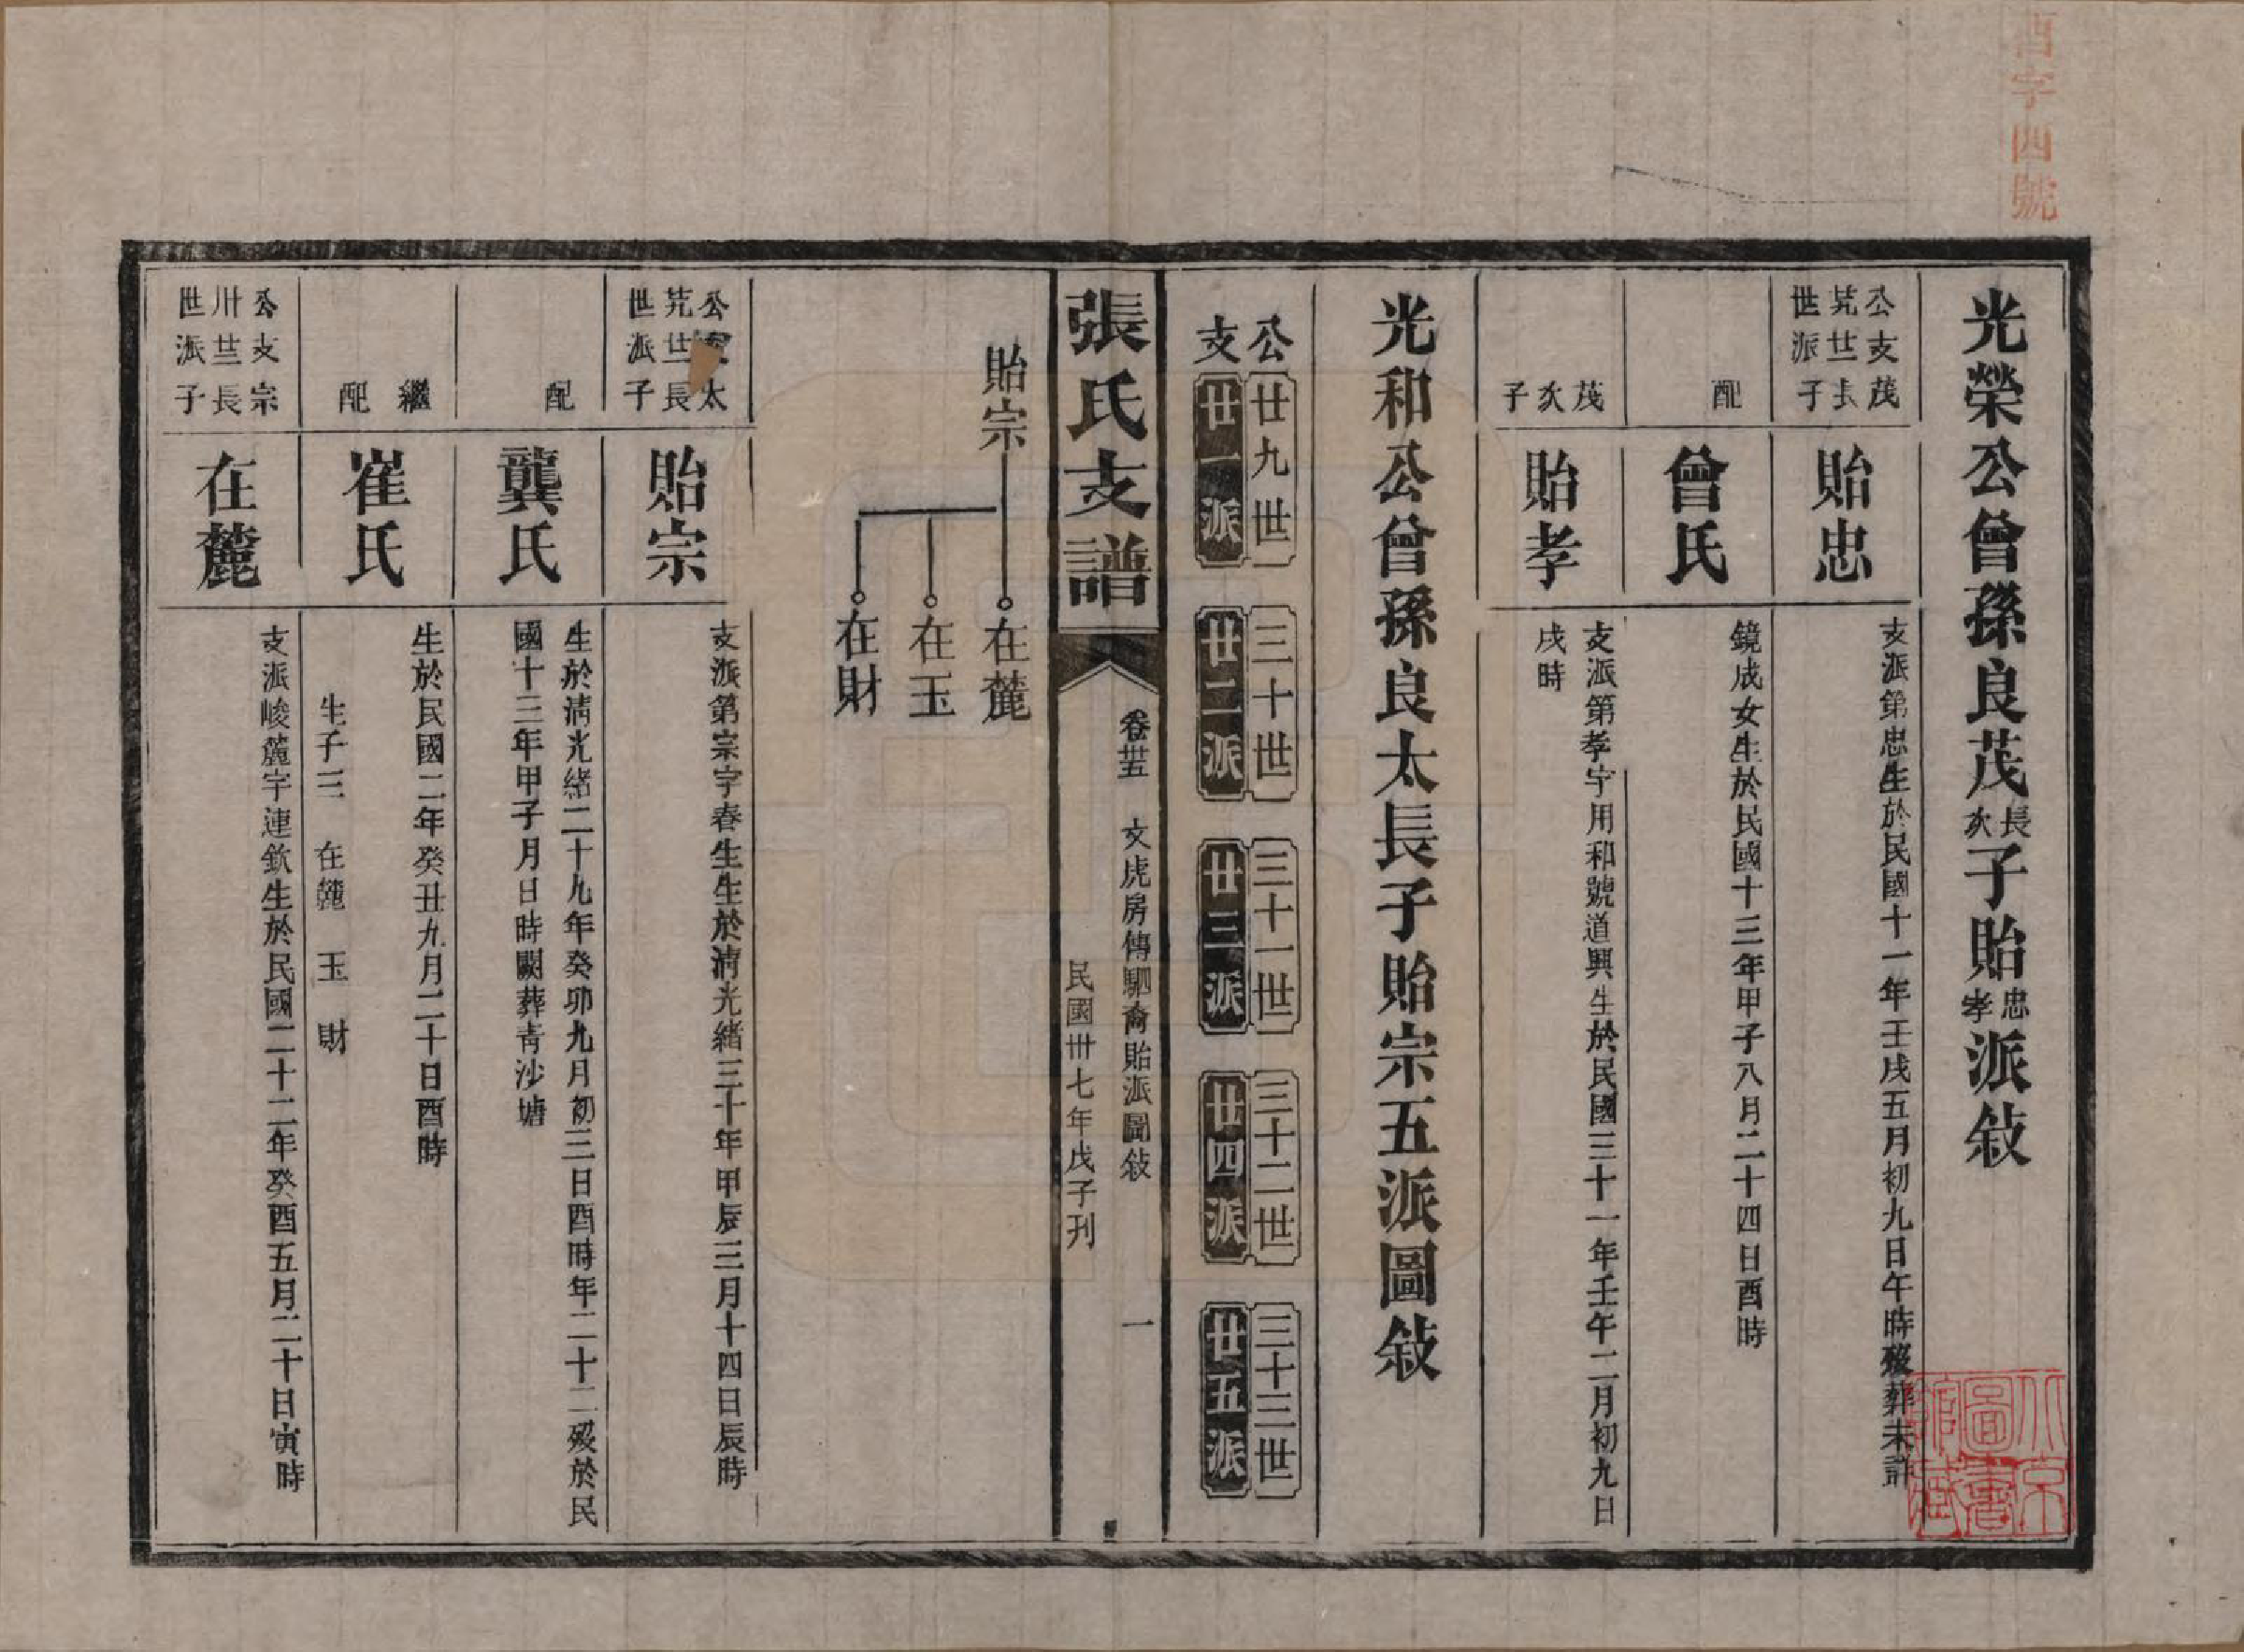 字四號
光榮公曾孫良茂長次子貽忠孝派敍
公支茂
世派子
貽忠
支派第忠生於民國十一年壬戌五月初九日午時歿葬未詳
配
曾氏
鏡成女生於民國十三年甲子八月二十四日酉時
茂次子
貽孝
支派第孝字用和號道興生於民國三十一年壬午二月初九日
戌時
光和公曾孫良太長子貽宗五派圖敍
公 廿九世 三十世 三十一世 三十二世 三十三世
支 廿一派 廿二派 廿三派 廿四派 廿五派
張氏支譜
卷卅五 文虎房傳駟裔貽派圖敍 一
民國卅七年戊子刊
貽宗
在麓
在玉
在財
太
長
世派子
貽宗
支派第宗字春生生於清光緒三十年甲辰三月十四日辰時
配
龔氏
生於清光緒二十九年癸卯九月初三日酉時年二十二歿於民
國十三年甲子月日時闕葬青沙塘
繼配
崔氏
生於民國二年癸丑九月二十日酉時
生子三 在麓 玉 財
公支宗
卅世長
世派子
在麓
支派峻麓字連欽生於民國二十二年癸酉五月二十日寅時
北京圖書館藏